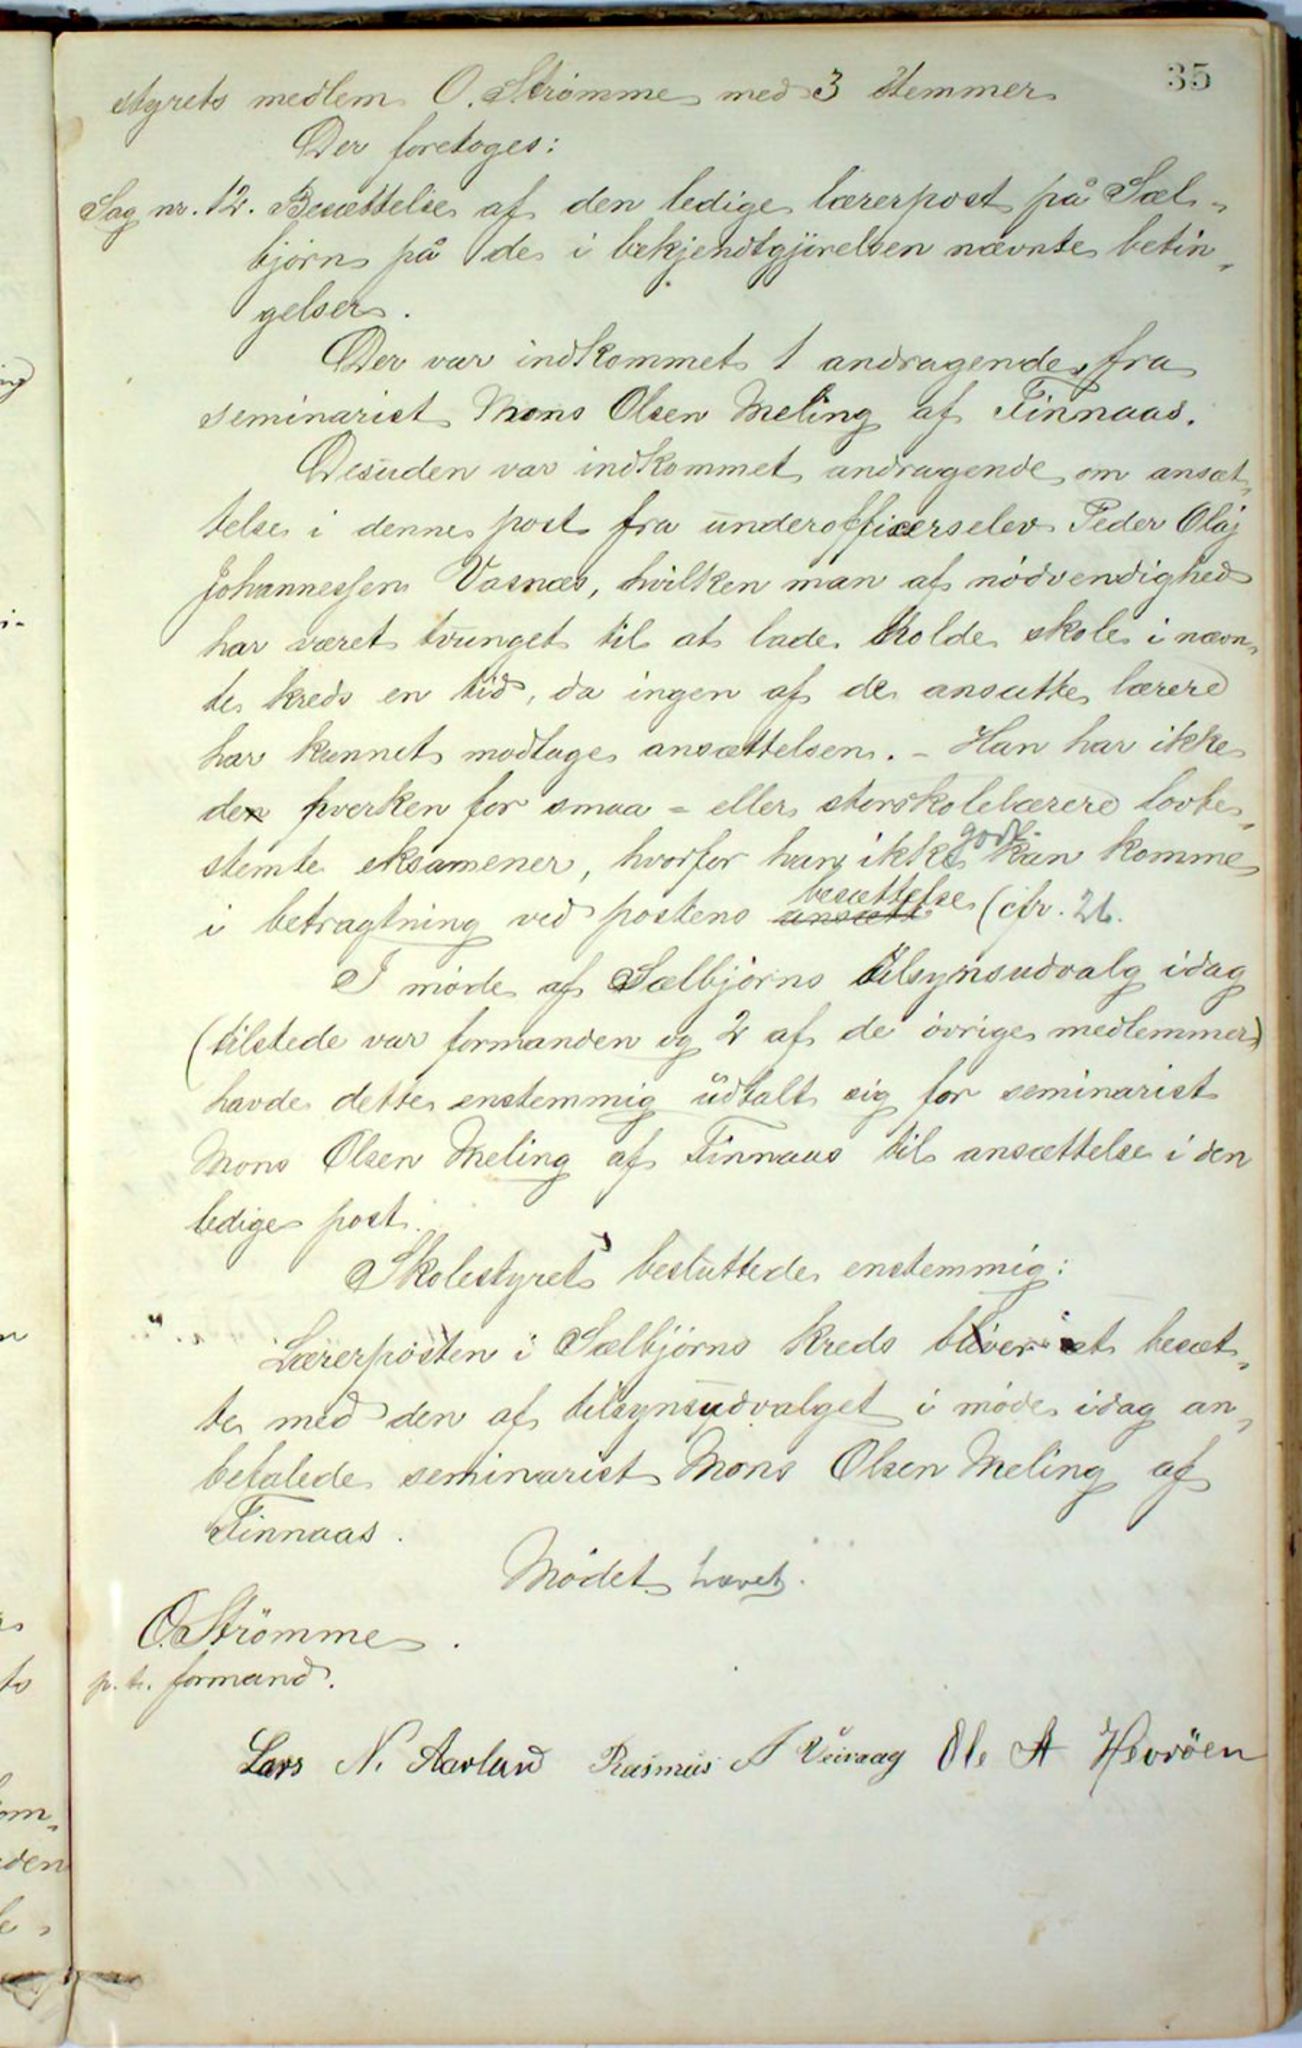 35
styrets medlem O. Strømme med 3 stemmer
Der foretoges:
Sag nr. 12. Besættelse af den ledige lærerpost på Sæl-
bjørn på de i bekjendtgjørelsen nævnte betin-
gelser.
Der var indkommet 1 andragende fra
seminarist Mons Olsen Meling af Finnaas.
Desuden var indkommet andragende om ansæt-
telse i denne post fra underofficerselev Peder Olaj
Johannessen Vasnæs, hvilken man af nødvendighed
har været tvunget til at lade holde skole i nævn-
te kreds en tid, da ingen af de ansatte lærere
har kunnet modtage ansættelsen. - Han har ikke
den hverken for smaa- eller storskolelærere lovbe-
stemte eksamener, hvorfor han ikke godt kan komme
i betragtning ved postens ansætt besættelse (cfr. 26.
I møde af Sælbjørns tilsynsudvalg idag
(tilstede var formanden og 2 af de øvrige medlemmer)
havde dette enstemmig udtalt sig for seminarist
Mons Olsen Meling af Finnaas til ansættelse i den
ledige post.
Skolestyret besluttede enstemmig:
"Lærerposten i Sælbjørns kreds bliver at besæt-
te med den af tilsynsudvalget i møde idag an-
befalede seminarist Mons Olsen Meling af
Finnaas.
Mødet hævet.
O. Strømme.
p.t. formand.
Lars N. Aarland Rasmus J Veivaag Ole A Hevrøen